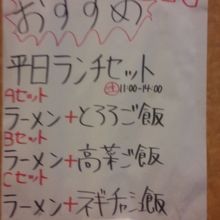 おすすめ
平日ランチセット
㊏11:00-14:00
Aセット
ラーメン+とろろご飯
Bセット
ラーメン+高菜ご飯
Cセット
ラーメン+ネギチャーシュー飯